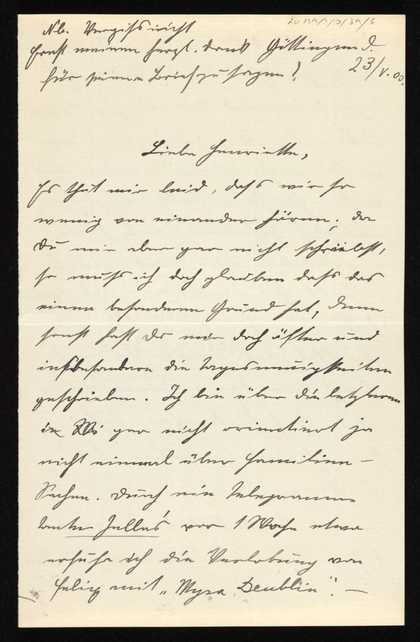 Nb. Vergiss nicht
Ernst meinen herzl. Dank Göttingen d.
für seinen Brief zu sagen! 23/V. 00.
Liebe Henriette,
Es thut mir leid, dass wir so
wenig von einander hören; da
Du mir aber gar nicht schreibst,
so muss ich doch glauben dass das
einen besonderen Grund hat, denn
sonst hast Du mir doch öfter und
insbesondere die Tagesneuigkeiten
geschrieben. Ich bin über die letzteren
gar nicht orientiert ja
nicht einmal über Familien-
Sachen. Durch ein Telegramm
vor 1 Woche etwa
erfuhr ich die Verlobung von
Felix mit "Myra Deublin". —